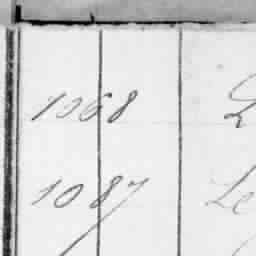 1068 L
1087 Le